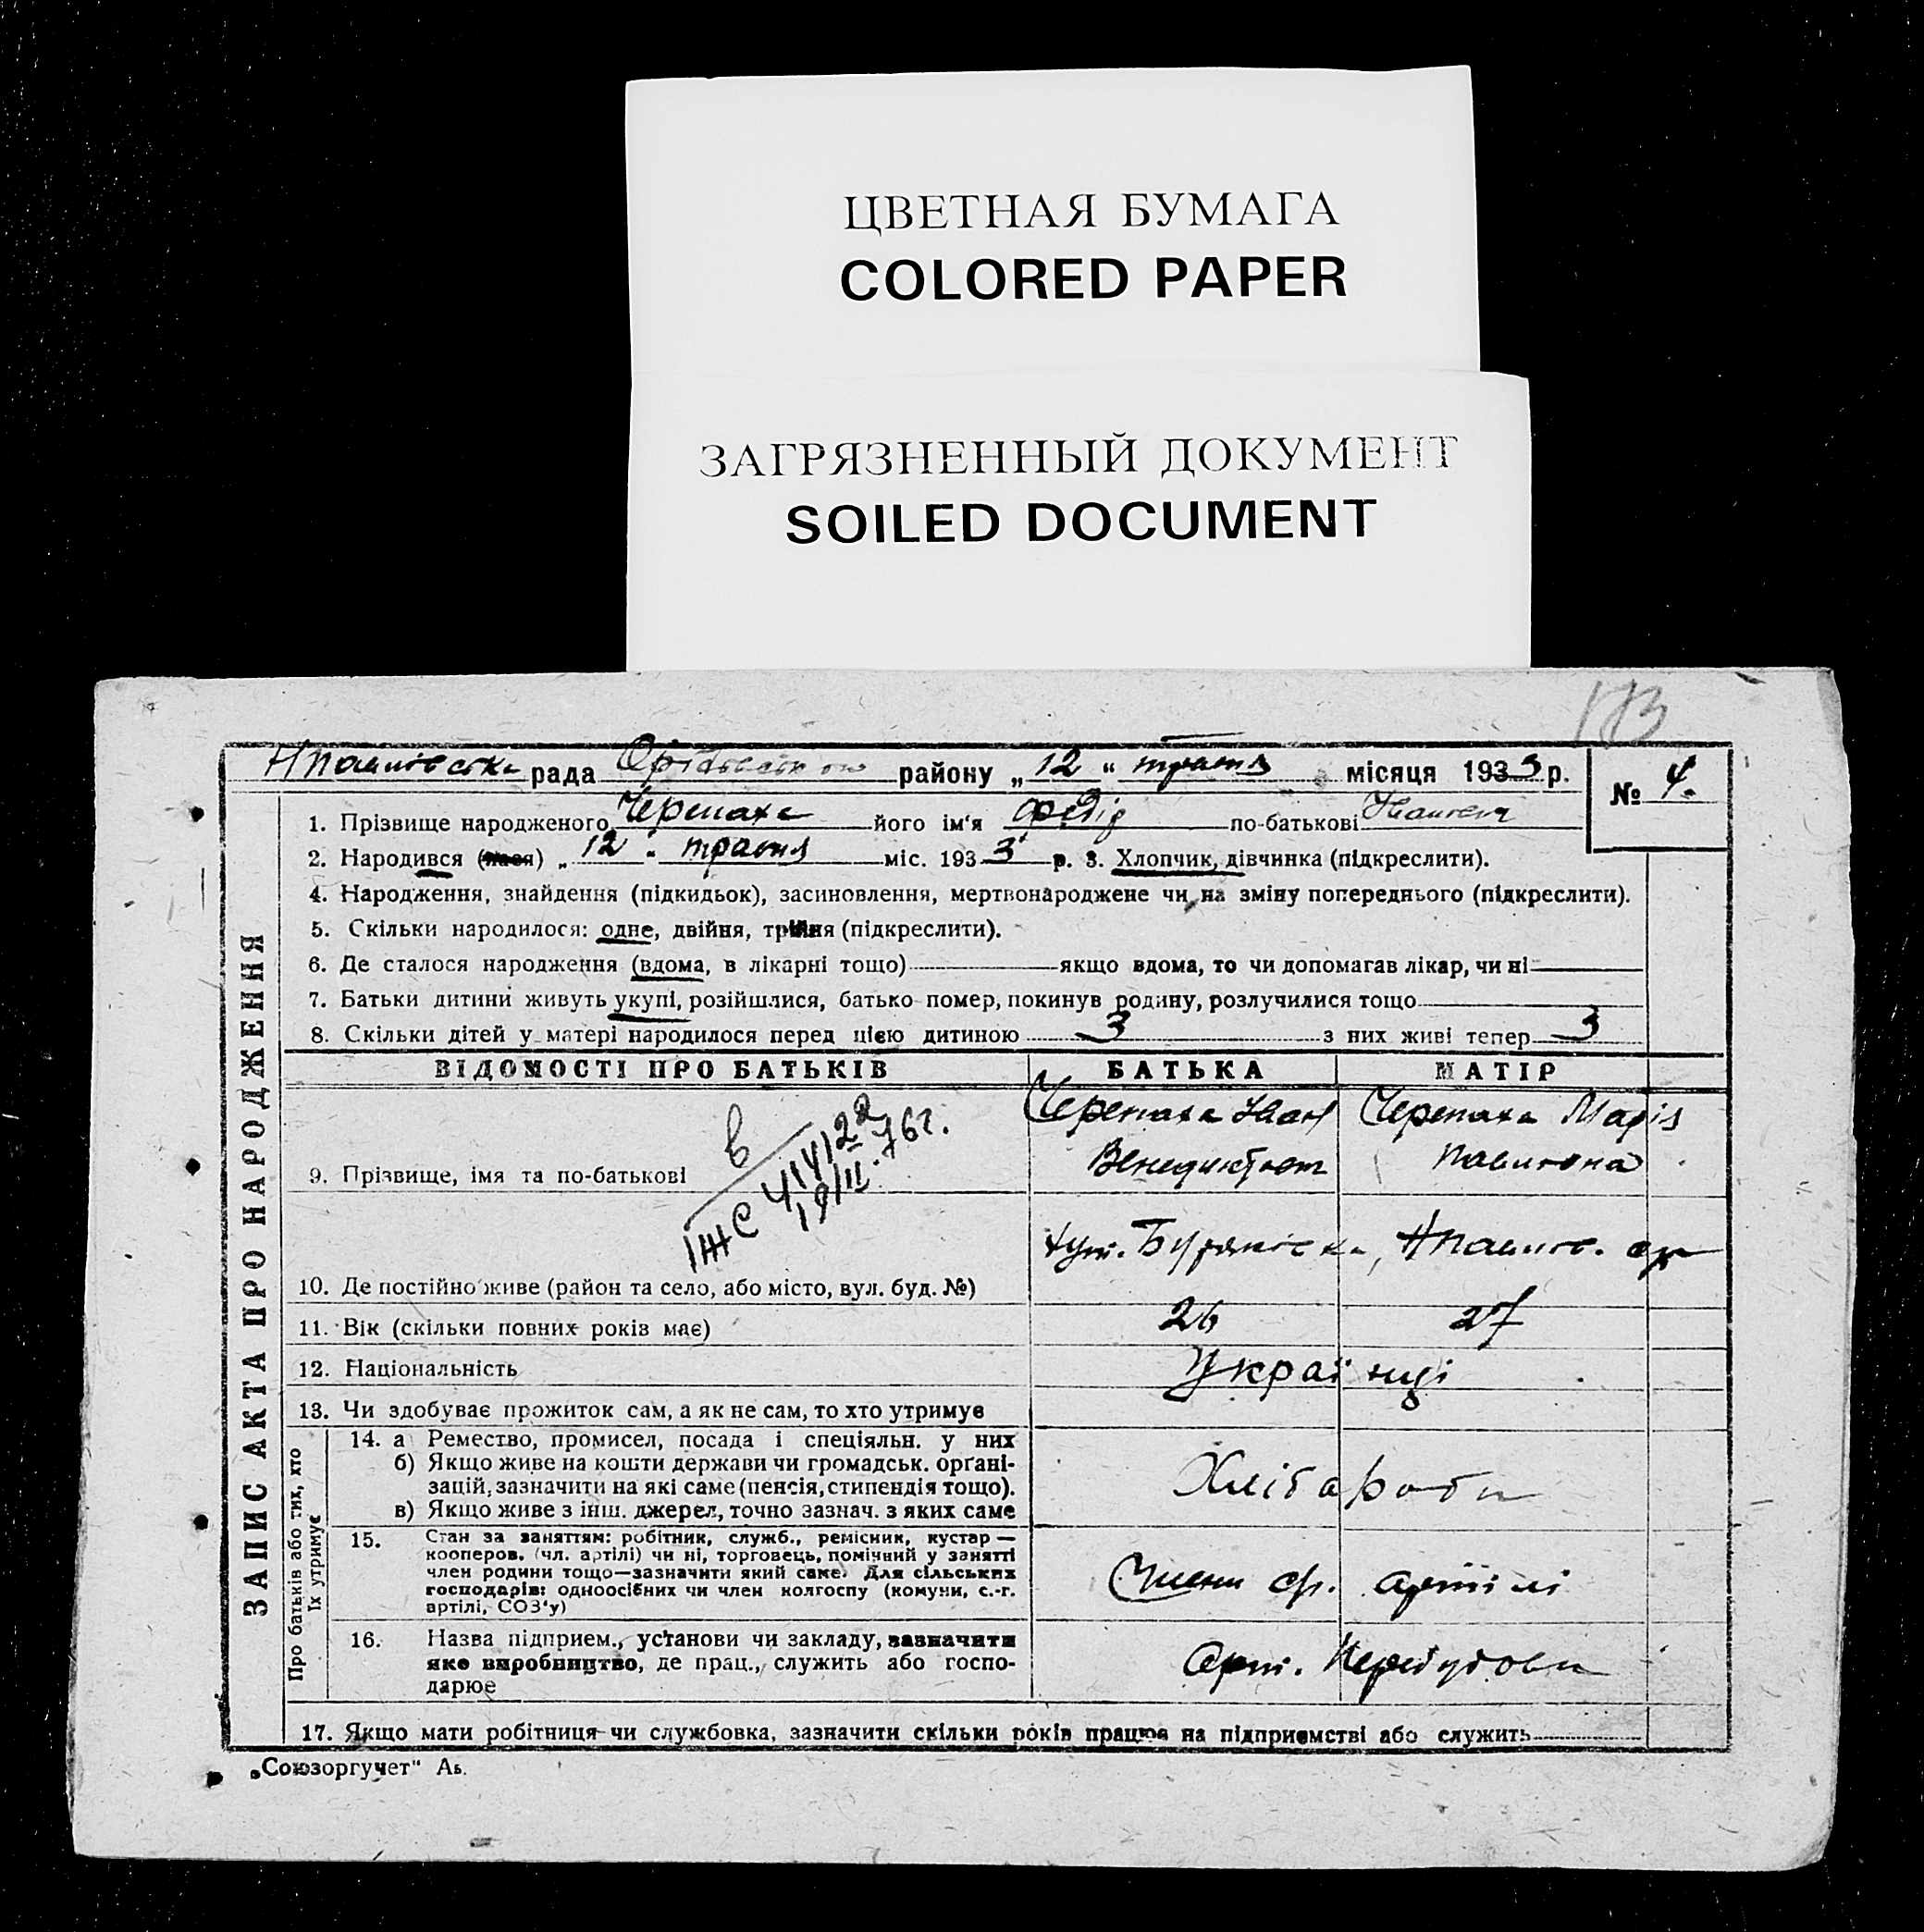 ЦВЕТНАЯ БУМАГА
COLORED PAPER
ЗАГРЯЗНЕННЫЙ ДОКУМЕНТ
SOILED DOCUMENT
173
рада району „12“ травня місяця 1933 р.
№ 4.
ЗАПИС АКТА ПРО НАРОДЖЕННЯ
1. Прізвище народженого Черепаха його ім'я Федір по-батькові Іванович
2. Народився (лася) „12“ травня міс. 1933 р. 3. Хлопчик, дівчинка (підкреслити).
4. Народження, знайдення (підкидьок), засиновлення, мертвонароджене чи на зміну попереднього (підкреслити).
5. Скільки народилося: одне, двійня, трійня (підкреслити).
6. Де сталося народження (вдома, в лікарні тощо) якщо вдома, то чи допомагав лікар, чи ні
7. Батьки дитини живуть укупі, розійшлися, батько помер, покинув родину, розлучилися тощо
8. Скільки дітей у матері народилося перед цією дитиною 3 з них живі тепер 3
ВІДОМОСТІ ПРО БАТЬКІВ БАТЬКА МАТІР
9. Прізвище, імя та по-батькові
Черепаха Іван
Венедиктович
Черепаха Марія
Павлівна
10. Де постійно живе (район та село, або місто, вул. буд. №)
хут.
11. Вік (скільки повних років має) 26 27
12. Національність Українці
13. Чи здобуває прожиток сам, а як не сам, то хто утримує
Про батьків або тих, хто
їх утримує
14. а Ремество, промисел, посада і спеціяльн. у них
б) Якщо живе на кошти держави чи громадськ. орґані-
зацій, зазначити на які саме (пенсія, стипендія тощо).
в) Якщо живе з інш. джерел, точно зазнач. з яких саме
Хлібароби
15. Стан за заняттям: робітник, служб., ремісник, кустар —
кооперов. (чл. артілі) чи ні, торговець, помічний у занятті
член родини тощо—зазначити який саме. Для сільських
господарів: одноосібних чи член колгоспу (комуни, с.-г.
артілі, СОЗ'у)
Члени артілі
16. Назва підприєм., установи чи закладу, зазначити
яке виробництво, де прац., служить або госпо-
дарює
Арт. Перебудова
17. Якщо мати робітниця чи службовка, зазначити скільки років працює на підприємстві або служить
„Союзоргучет" Аь.